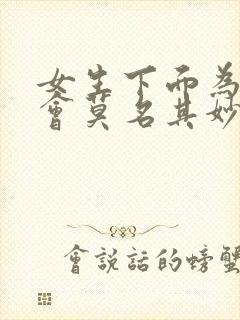 女生下面為
會莫名其妙
會說話的螃蟹